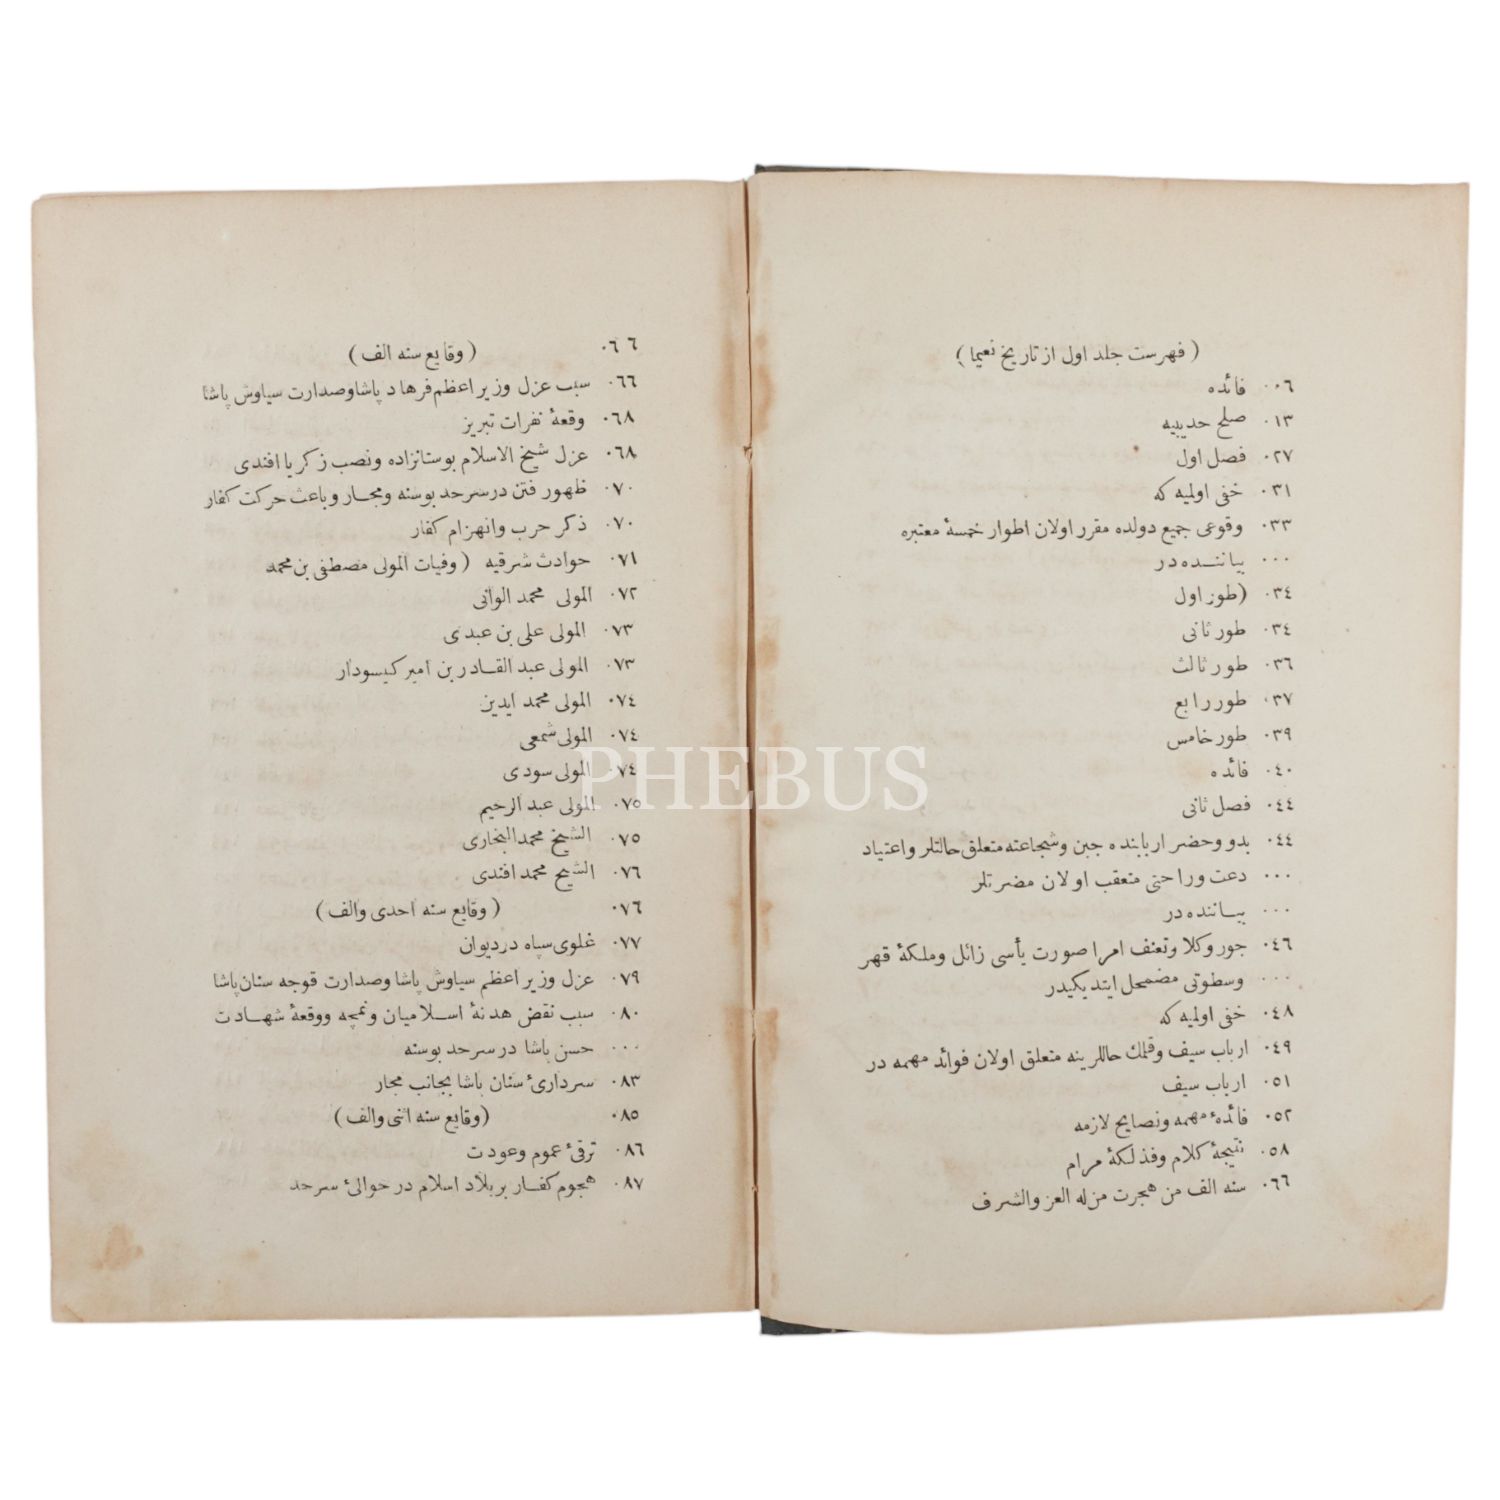 ( فهرست جلد اول از تاریخ نعیما )
٠٠٦ فائده
٠١٣ صلح حدیبیه
٠٢٧ فصل اول
٠٣١ خفی اولمیه که
٠٣٣ وقوعی جمیع دولده مقرر اولان اطوار خمسهٔ معتبره
٠٠٠ بیاننده در
٠٣٤ (طور اول
٠٣٤ طور ثانی
٠٣٦ طور ثالث
٠٣٧ طور رابع
٠٣٩ طور خامس
٠٤٠ فائده
٠٤٤ فصل ثانی
٠٤٤ بدو وحضر اربابنده جبن وشجاعته متعلق حالتلر واعتیاد
٠٠٠ دعت وراحتی متعقب اولان مضرتلر
٠٠٠ بیاننده در
٠٤٦ جور وکلا وتعنف امرا صورت یأسی زائل وملکهٔ قهر
٠٠٠ وسطوتی مضمحل ایتدیکیدر
٠٤٨ خفی اولمیه که
٠٤٩ ارباب سیف وقلمك حاللرینه متعلق اولان فوائد مهمه در
٠٥١ ارباب سیف
٠٥٢ فائدهٔ مهمه ونصایح لازمه
٠٥٨ نتیجهٔ کلام وفذلکهٔ مرام
٠٦٦ سنه الف من هجرت من له العز والشرف
٠٦٦ ( وقایع سنه الف )
٠٦٦ سبب عزل وزیر اعظم فرهاد پاشا وصدارت سیاوش پاشا
٠٦٨ وقعهٔ نفرات تبریز
٠٦٨ عزل شیخ الاسلام بوستانزاده ونصب زکریا افندی
٠٧٠ ظهور فتن در سرحد بوسنه ومجار وباعث حرکت کفار
٠٧٠ ذکر حرب وانهزام کفار
٠٧١ حوادث شرقیه ( وفیات المولی مصطفی بن محمد
٠٧٢ المولی محمد الوانی
٠٧٣ المولی علی بن عبدی
٠٧٣ المولی عبد القادر بن امیر کیسودار
٠٧٤ المولی محمد ایدیز
٠٧٤ المولی شمعی
٠٧٤ المولی سودی
٠٧٥ المولی عبد الرحیم
٠٧٥ الشیخ محمد البخاری
٠٧٦ الشیخ محمد افندی
٠٧٦ ( وقایع سنه احدی والف )
٠٧٧ غلوی سپاه در دیوان
٠٧٩ عزل وزیر اعظم سیاوش پاشا وصدارت قوجه سنان پاشا
٠٨٠ سبب نقض هدنهٔ اسلامیان ونمچه ووقعهٔ شهادت
٠٠٠ حسن پاشا در سرحد بوسنه
٠٨٣ سرداریٔ سنان پاشا بجانب مجار
٠٨٥ (وقایع سنه اثنی والف )
٠٨٦ ترقیٔ عموم وعودت
٠٨٧ هجوم کفار بر بلاد اسلام در حوالیٔ سرحد
PHEBUS